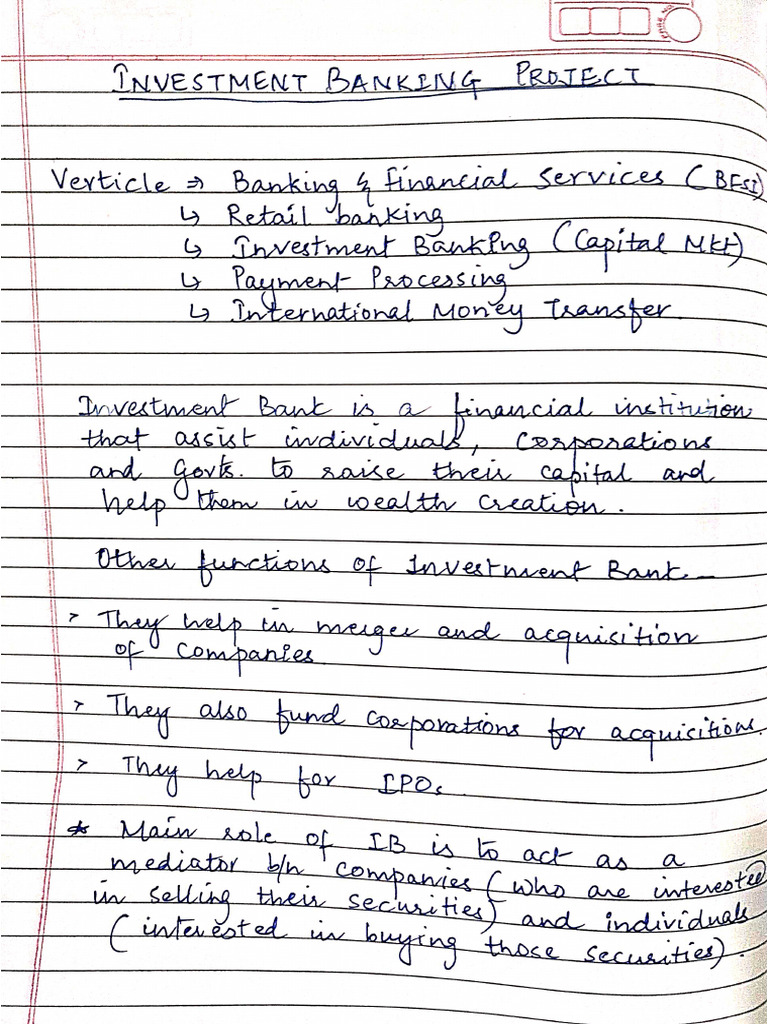 INVESTMENT BANKING PROJECT
Verticle ⇒ Banking & financial services (BFSI)
↳ Retail banking
↳ Investment Banking (Capital Mkt)
↳ Payment Processing
↳ International Money Transfer.
Investment Bank is a financial institution
that assist individuals, corporations
and Govts. to raise their capital and
help them in wealth creation.
Other functions of Investment Bank -
> They help in merger and acquisition
of companies
> They also fund corporations for acquisitions.
> They help for IPOs
* Main role of IB is to act as a
mediator b/n companies (who are interested
in selling their securities) and individuals
(interested in buying those securities).